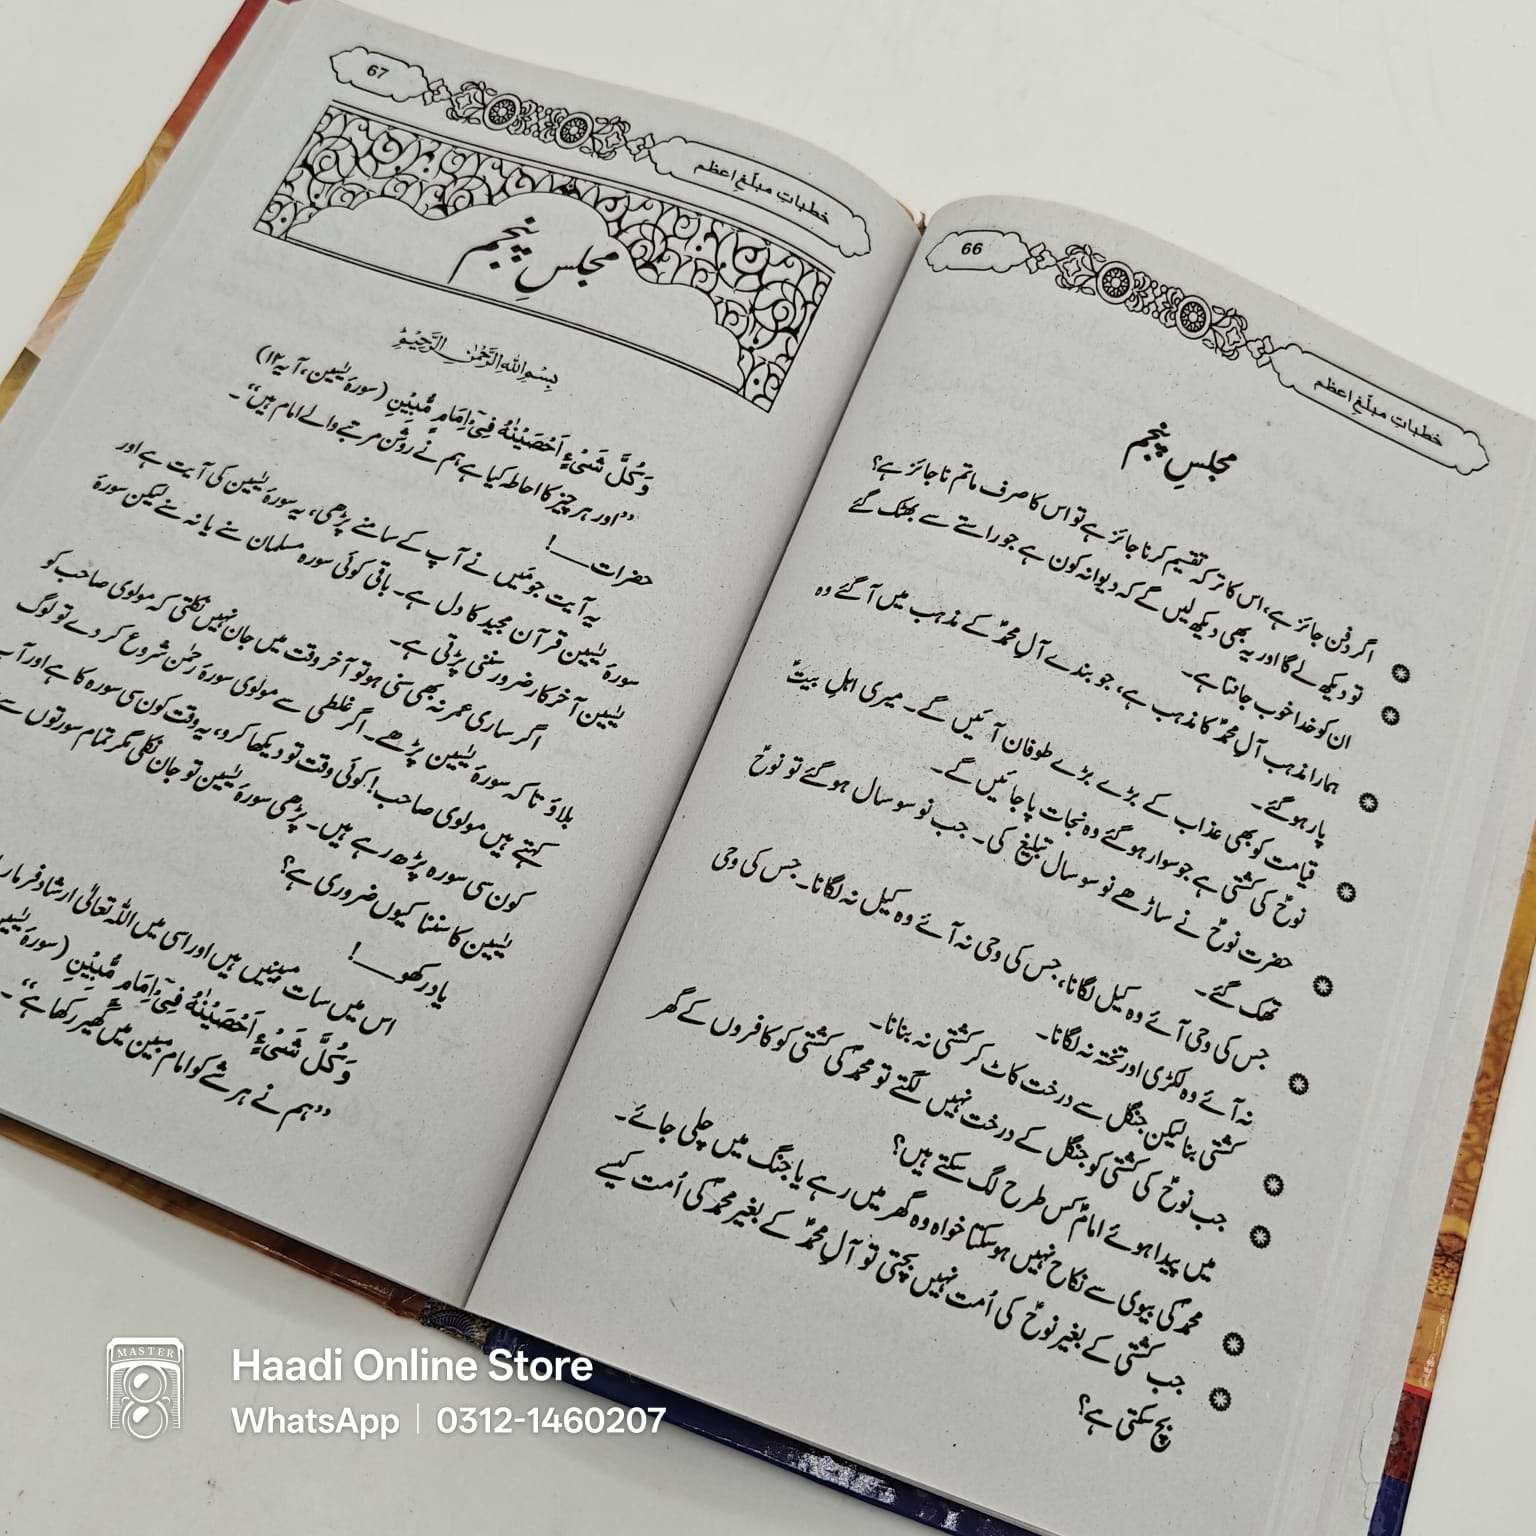 66
خطباتِ مبلّغِ اعظم
مجلسِ پنجم
اگر دفن جائز ہے، اس کا ترکہ تقسیم کرنا جائز ہے تو اس کا صرف ماتم ناجائز ہے؟
تو دیکھ لے گا اور یہ بھی دیکھ لیں گے کہ دیوانہ کون ہے جو راستے سے بھٹک گئے
ان کو خدا خوب جانتا ہے۔
ہمارا مذہب آلِ محمدؐ کا مذہب ہے، جو بندے آلِ محمدؐ کے مذہب میں آ گئے وہ
پار ہو گئے۔
قیامت کو بھی عذاب کے بڑے بڑے طوفان آئیں گے۔ میری اہلِ بیتؑ
نوحؑ کی کشتی ہے جو سوار ہو گئے وہ نجات پا جائیں گے۔
حضرت نوحؑ نے ساڑھے نو سو سال تبلیغ کی۔ جب نو سو سال ہو گئے تو نوحؑ
تھک گئے۔
جس کی وحی آئے وہ کیل لگانا، جس کی وحی نہ آئے وہ کیل نہ لگانا۔ جس کی وحی
نہ آئے وہ لکڑی اور تختہ نہ لگانا۔
کشتی بنا لیکن جنگل سے درخت کاٹ کر کشتی نہ بنانا۔
جب نوحؑ کی کشتی کو جنگل کے درخت نہیں لگتے تو محمدؐ کی کشتی کو کافروں کے گھر
میں پیدا ہوئے امامؑ کس طرح لگ سکتے ہیں؟
محمدؐ کی بیوی سے نکاح نہیں ہو سکتا خواہ وہ گھر میں رہے یا جنگ میں چلی جائے۔
جب کشتی کے بغیر نوحؑ کی اُمت نہیں بچتی تو آلِ محمدؐ کے بغیر محمدؐ کی اُمت کیسے
بچ سکتی ہے؟
67
خطباتِ مبلّغِ اعظم
مجلسِ پنجم
بِسْمِ اللہِ الرَّحْمٰنِ الرَّحِیْمِ
وَكُلَّ شَیْءٍ اَحْصَیْنٰهُ فِیْۤ اِمَامٍ مُّبِیْنٍ (سورۂ یٰسین، آیہ ۱۲)
”اور ہر چیز کا احاطہ کیا ہے ہم نے روشن مرتبے والے امام ہیں“۔
حضرات——!
یہ آیت جو میں نے آپ کے سامنے پڑھی، یہ سورۂ یٰسین کی آیت ہے اور
سورۂ یٰسین قرآن مجید کا دل ہے۔ باقی کوئی سورہ مسلمان سنے یا نہ سنے لیکن سورۂ
یٰسین آخر کار ضرور سننی پڑتی ہے۔
اگر ساری عمر نہ بھی سنی ہو تو آخر وقت میں جان نہیں نکلتی کہ مولوی صاحب کو
بلاؤ تا کہ سورۂ یٰسین پڑھے۔ اگر غلطی سے مولوی سورۂ رحمٰن شروع کر دے تو لوگ
کہتے ہیں مولوی صاحب! کوئی وقت تو دیکھا کرو، یہ وقت کون سی سورہ کا ہے اور آپ
کون سی سورہ پڑھ رہے ہیں۔ پڑھی سورۂ یٰسین تو جان نکلی مگر تمام سورتوں سے
یٰسین کا سننا کیوں ضروری ہے؟
یاد رکھو——!
اس میں سات مبینیں ہیں اور اسی میں اللہ تعالیٰ ارشاد فرما
وَكُلَّ شَیْءٍ اَحْصَیْنٰهُ فِیْۤ اِمَامٍ مُّبِیْنٍ (سورۂ
”ہم نے ہر شے کو امام مبین میں گھیر رکھا ہے“۔
MASTER
Haadi Online Store
WhatsApp | 0312-1460207